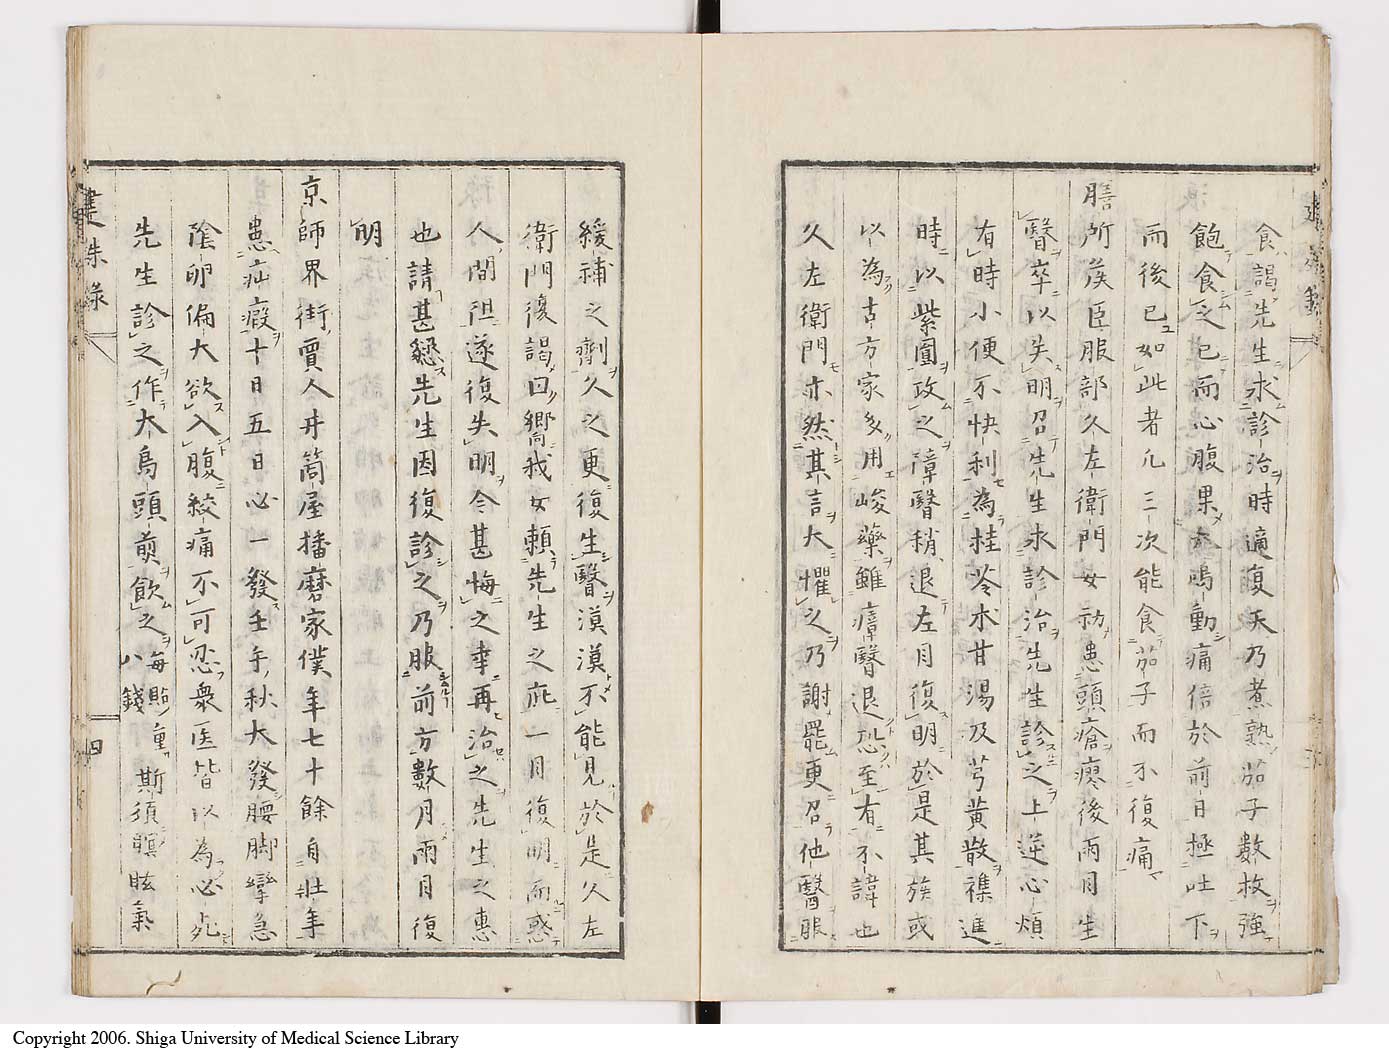 食謁先生求診治時適夏天乃煮熟茄子數枚強
飽食之已而心腹果大鳴動痛倍於前日極吐下
而後已如此者凡三次能食茄子而不復痛
膳所矦臣服部久左衛門女初患頭瘡瘳後両目生
醫卒以失明召先生求診治先生診之上逆心煩
有時小便不快利為桂苓朮甘湯及芎黄散襍進
時以紫圓攻之障醫稍退左目復明於是其族或
以為古方家多用峻藥雖瘴醫退恐至有不諱也
久左衛門亦然其言大懼之乃謝罷更召他醫服
緩補之劑久之更復生醫漠漠不能見於是久左
衛門復謁曰嚮我女賴先生之庇一目復明而惑
人間阻遂復失明今甚悔之幸再治之先生之惠
也請甚懇先生因復診之乃服前方數月両目復
明
京師界街賈人井筒屋播磨家僕年七十餘自壯年
患疝瘕十日五日必一發壬午秋大發腰脚攣急
陰卵偏大欲入腹絞痛不可忍衆医皆以為必死
先生診之作大烏頭煎飲之每貼重八錢斯須瞑眩氣
建殊錄
四
Copyright 2006. Shiga University of Medical Science Library